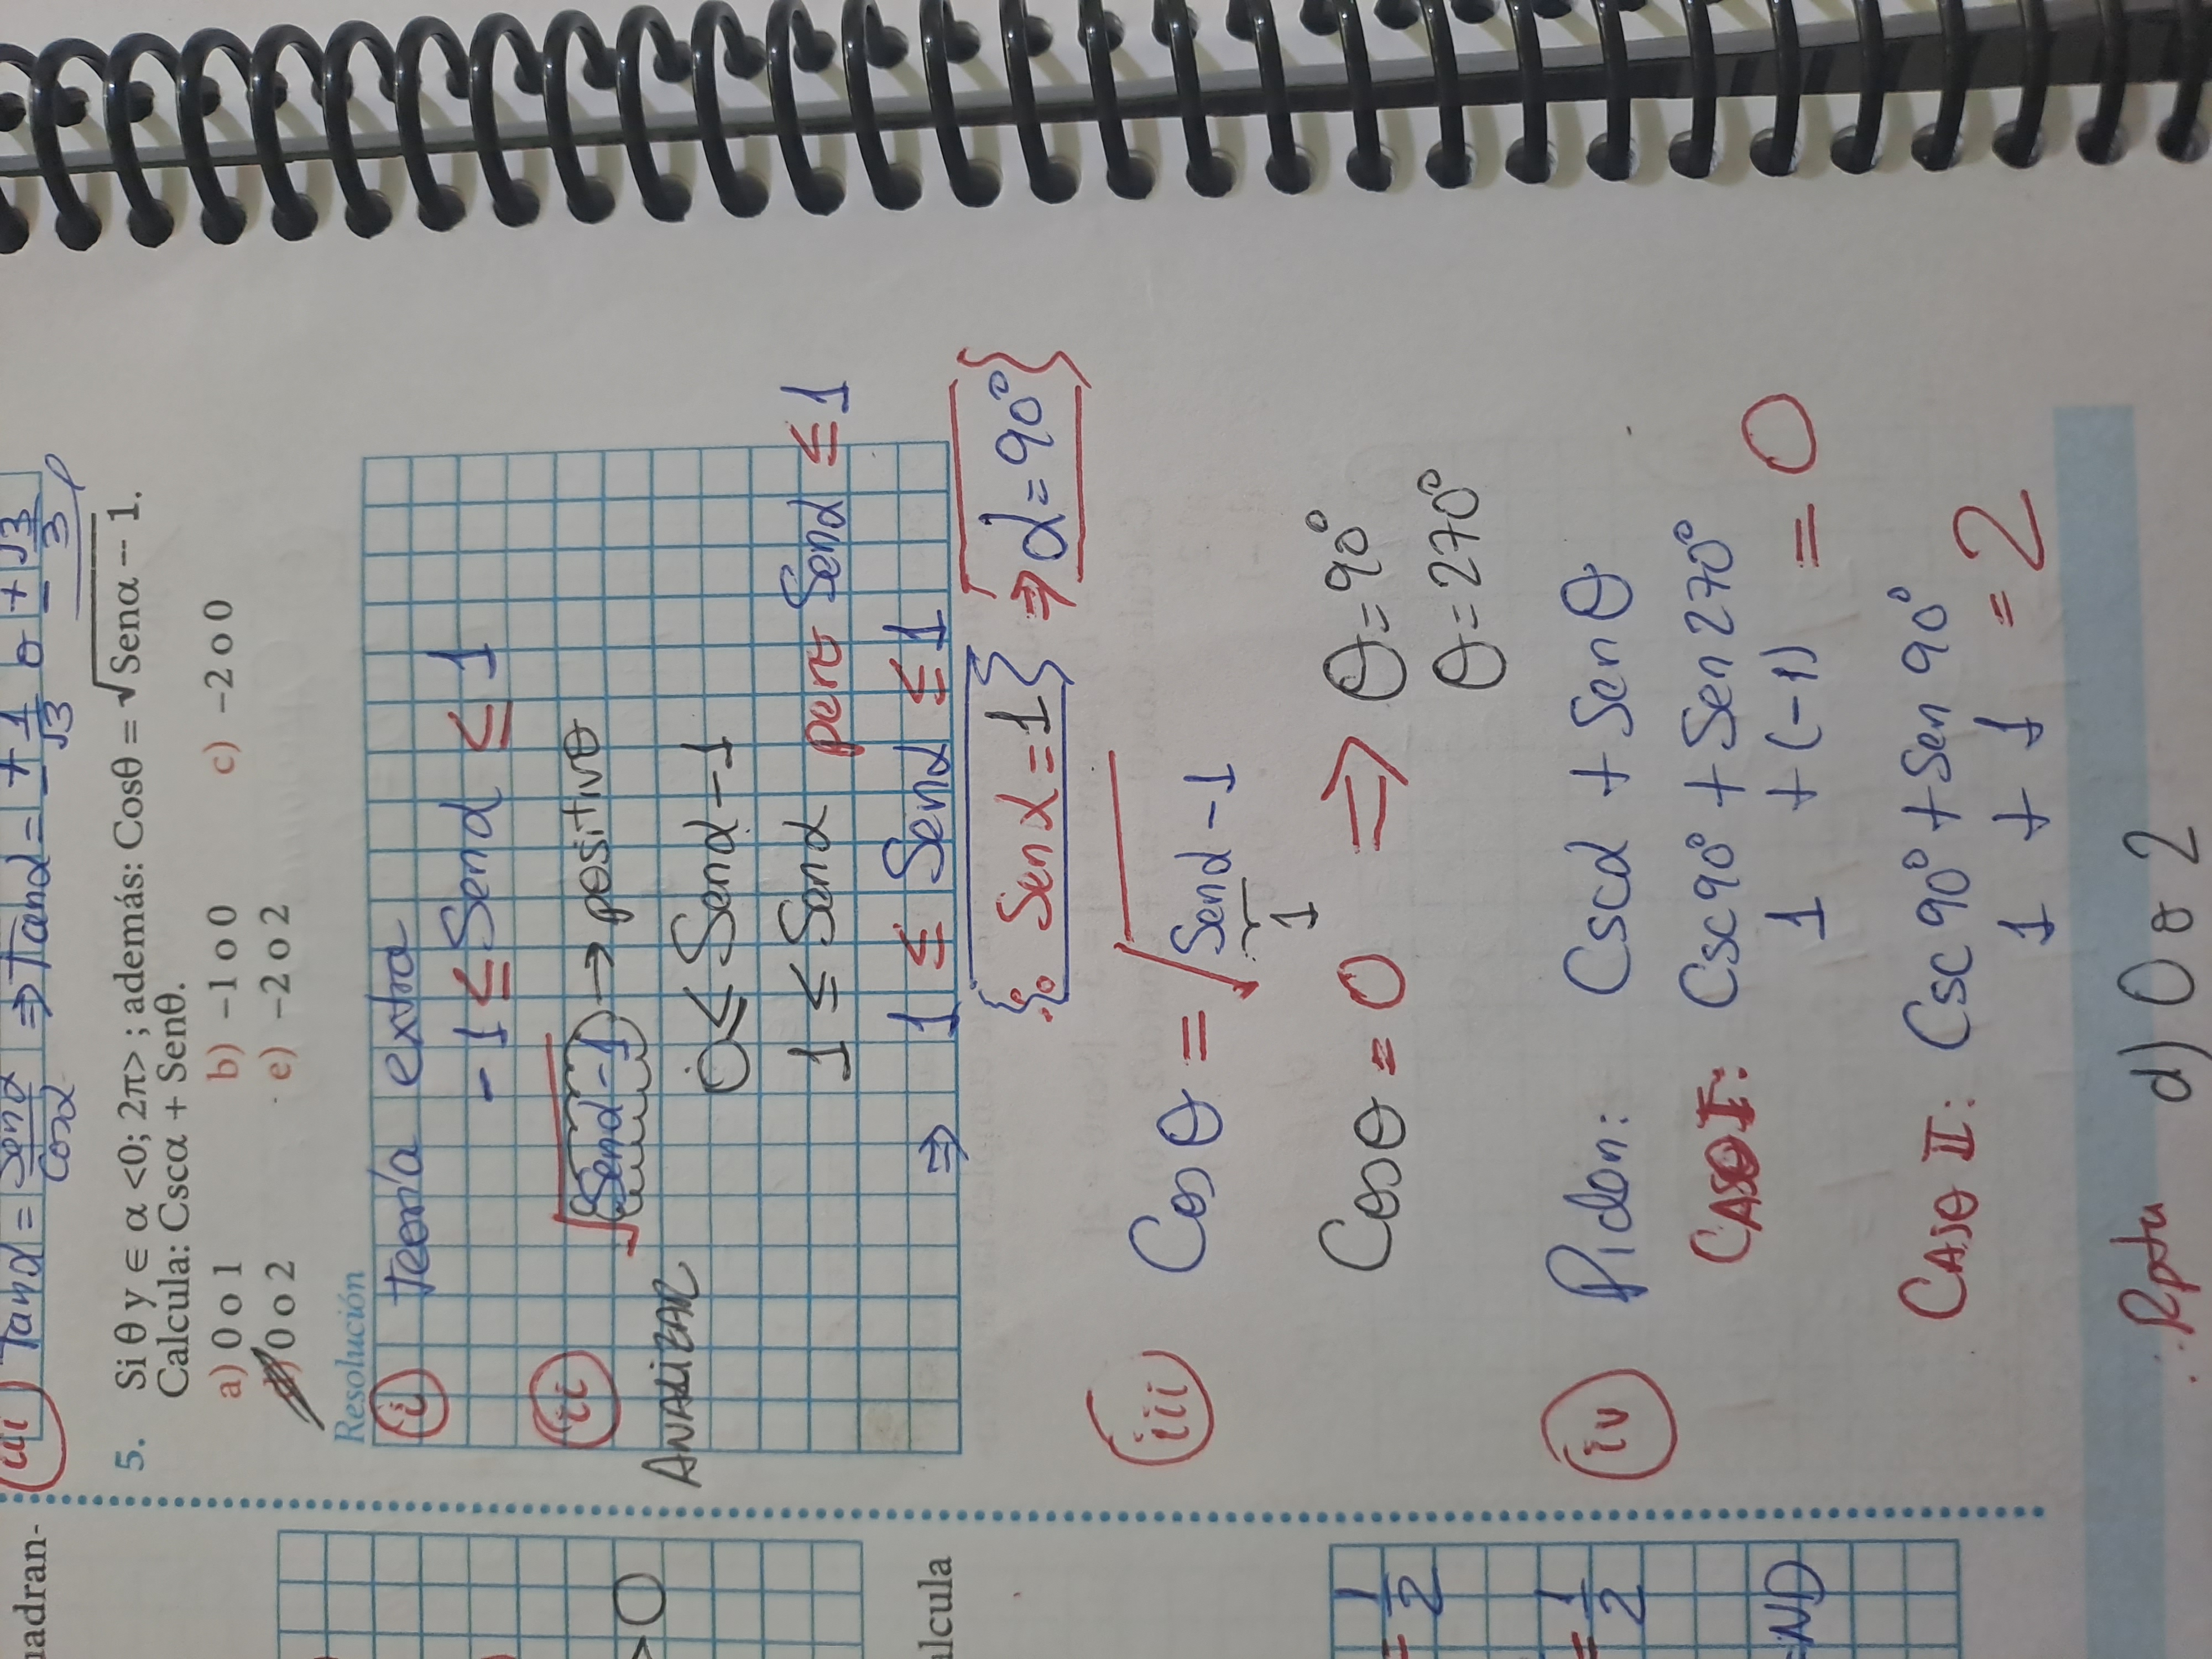 uadran-
iii Tanα = Senα/Cosα ⇒ Tanα = ± 1/√3 o ± √3/3
5. Si θ y ∈ α <0; 2π> ; además: Cosθ = √Senα − 1.
Calcula: Cscα + Senθ.
a) 0 o 1 b) −1 o 0 c) −2 o 0
d) 0 o 2 e) −2 o 2
Resolución
i teoría extra
-1 ≤ Senα ≤ 1
ii √Senα-1 → positivo
>0
ANALIZAR
0 ≤ Senα-1
1 ≤ Senα pero Senα ≤ 1
alcula
⇒ 1 ≤ Senα ≤ 1
{∴ Senα = 1} ⇒ α = 90°}
iii Cosθ = √Senα - 1
1
Cosθ = 0 ⇒ θ = 90°
= 1/2
θ = 270°
= 1/2
iv Piden: Cscα + Senθ
CASO I: Csc90° + Sen270°
=ND
1 + (-1) = 0
CASO II: Csc 90° + Sen 90°
1 + 1 = 2
∴ Rpta d) 0 o 2